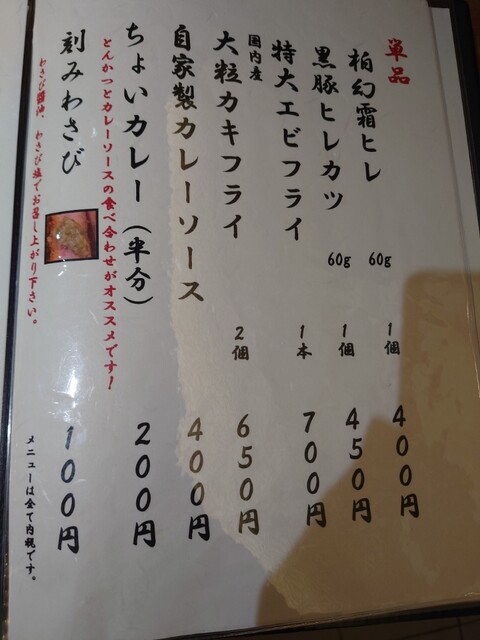 単品
柏幻霜ヒレ 60g 1個 400円
黒豚ヒレカツ 60g 1個 450円
特大エビフライ 1本 700円
国内産
大粒カキフライ 2個 650円
自家製カレーソース 400円
ちょいカレー（半分） 200円
とんかつとカレーソースの食べ合わせがオススメです！
刻みわさび 100円
わさび醤油、わさび塩でお召し上がり下さい。
メニューは全て内税です。